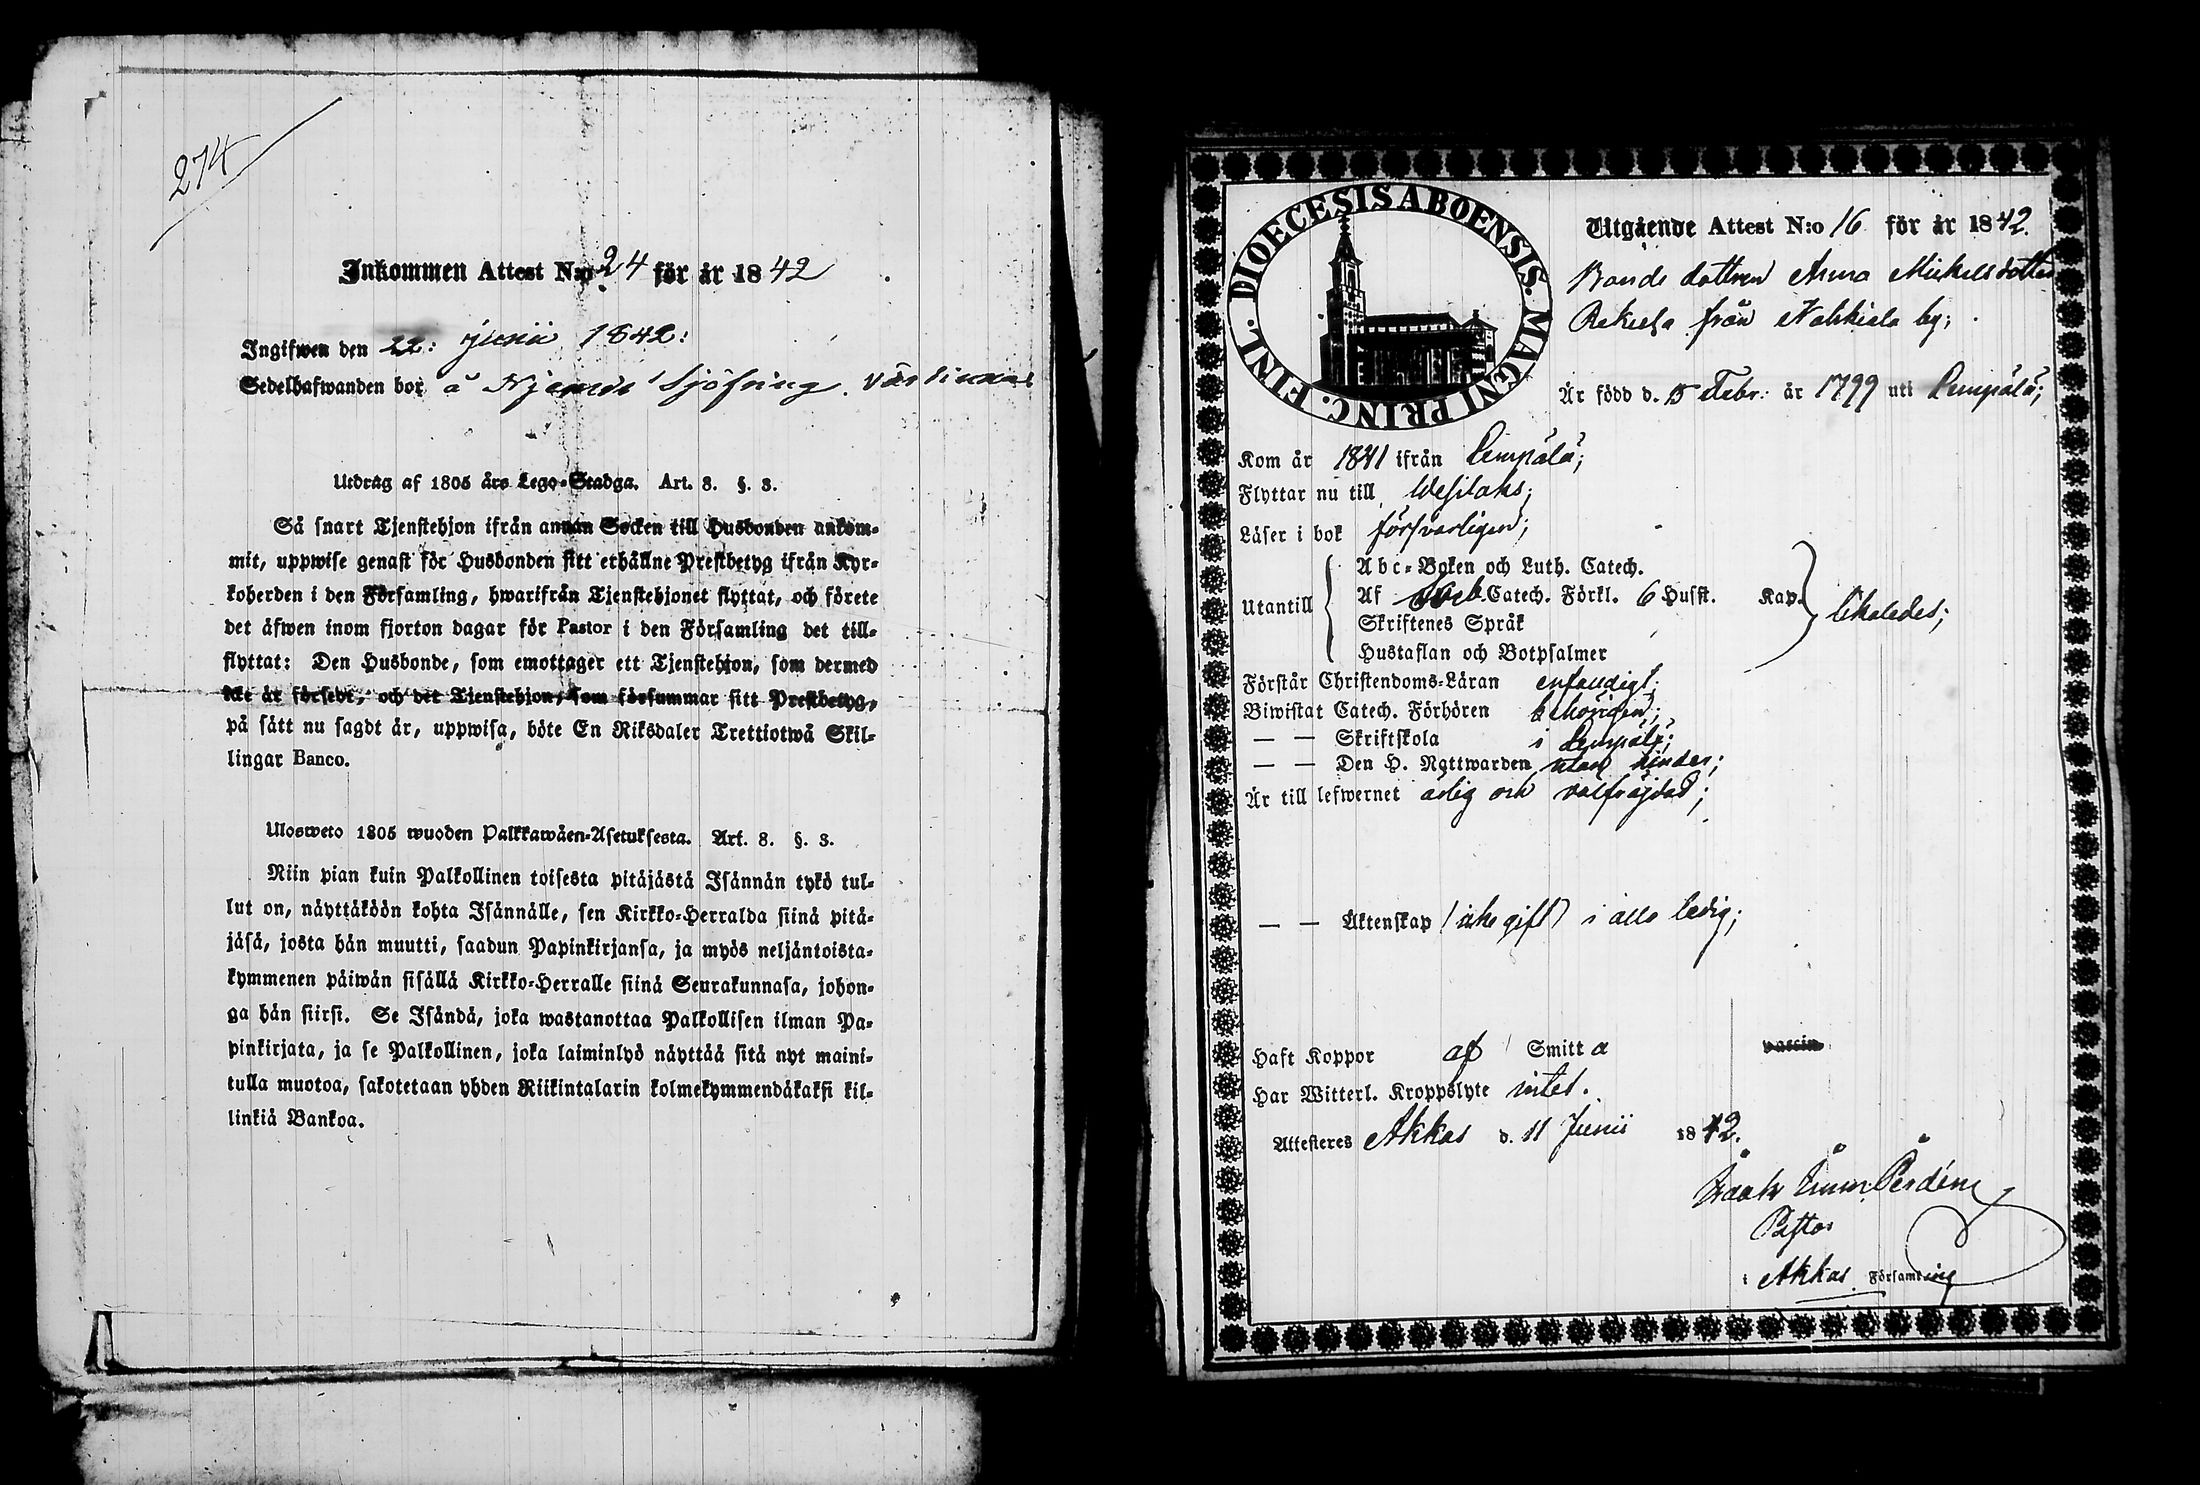 274
Inkommen Attest N:o 24 för år 1842
Ingifwen den 22: Junii 1842:
Sedelhafwanden bor å
Utdrag af 1805 års Lego-Stadga. Art. 8. §. 3.
Så snart Tjenstehjon ifrån annan Socken till Husbonden ankom-
mit, uppwise genast för Husbonden sitt erhållne Prestbetyg ifrån Kyr-
koherden i den Församling, hwarifrån Tjenstehjonet flyttat, och förete
det äfwen inom fjorton dagar för Pastor i den Församling det till-
flyttat: Den Husbonde, som emottager ett Tjenstehjon, som dermed
icke är försedt, och det Tjenstehjon, som försummar sitt Prestbetyg,
på sätt nu sagdt är, uppwisa, böte En Riksdaler Trettiotwå Skil-
lingar Banco.
Ulosweto 1805 wuoden Palkkawäen-Asetuksesta. Art. 8. §. 3.
Niin pian kuin Palkollinen toisesta pitäjästä Isännän tykö tul-
lut on, näyttäköön kohta Isännälle, sen Kirkko-Herralda siinä pitä-
jäsä, josta hän muutti, saadun Papinkirjansa, ja myös neljäntoista-
kymmenen päiwän sisällä Kirkko-Herralle siinä Seurakunnasa, johon-
ga hän siirsi. Se Isändä, joka wastanottaa Palkollisen ilman Pa-
pinkirjata, ja se Palkollinen, joka laiminlyö näyttää sitä nyt maini-
tulla muotoa, sakotetaan yhden Riikintalarin kolmekymmendäkaksi kil-
linkiä Bankoa.
DIOECESIS ABOENSIS. MAGNI PRINC. FINL.
Utgående Attest N:o 16 för år 1842.
Bonde dottren Anna Mickelsdotter
från by;
Är född d. 15 Febr: år 1799 uti Lempälä;
Kom år 1841 ifrån Lempälä;
Flyttar nu till Wesilaks;
Läser i bok försvarligen;
Utantill
Abc-Boken och Luth. Catech.
Af Catech. Förkl. 6 Husst. Kap.
Skriftenes Språk
Hustaflan och Botpsalmer
likaledes;
Förstår Christendoms-Läran enfaldigt;
Biwistat Catech. Förhören behörigen;
— — Skriftskola i Lempälä;
— — Den H. Nattwarden utan hinder;
Är till lefwernet ärlig och välfrägdad;
— — Äktenskap (icke gift) i allo ledig;
Haft Koppor af Smitta vaccin
Har Witterl. Kroppslyte intet.
Attesteres Akkas d. 11 Junii 1842.
Pastor
i Akkas Församling